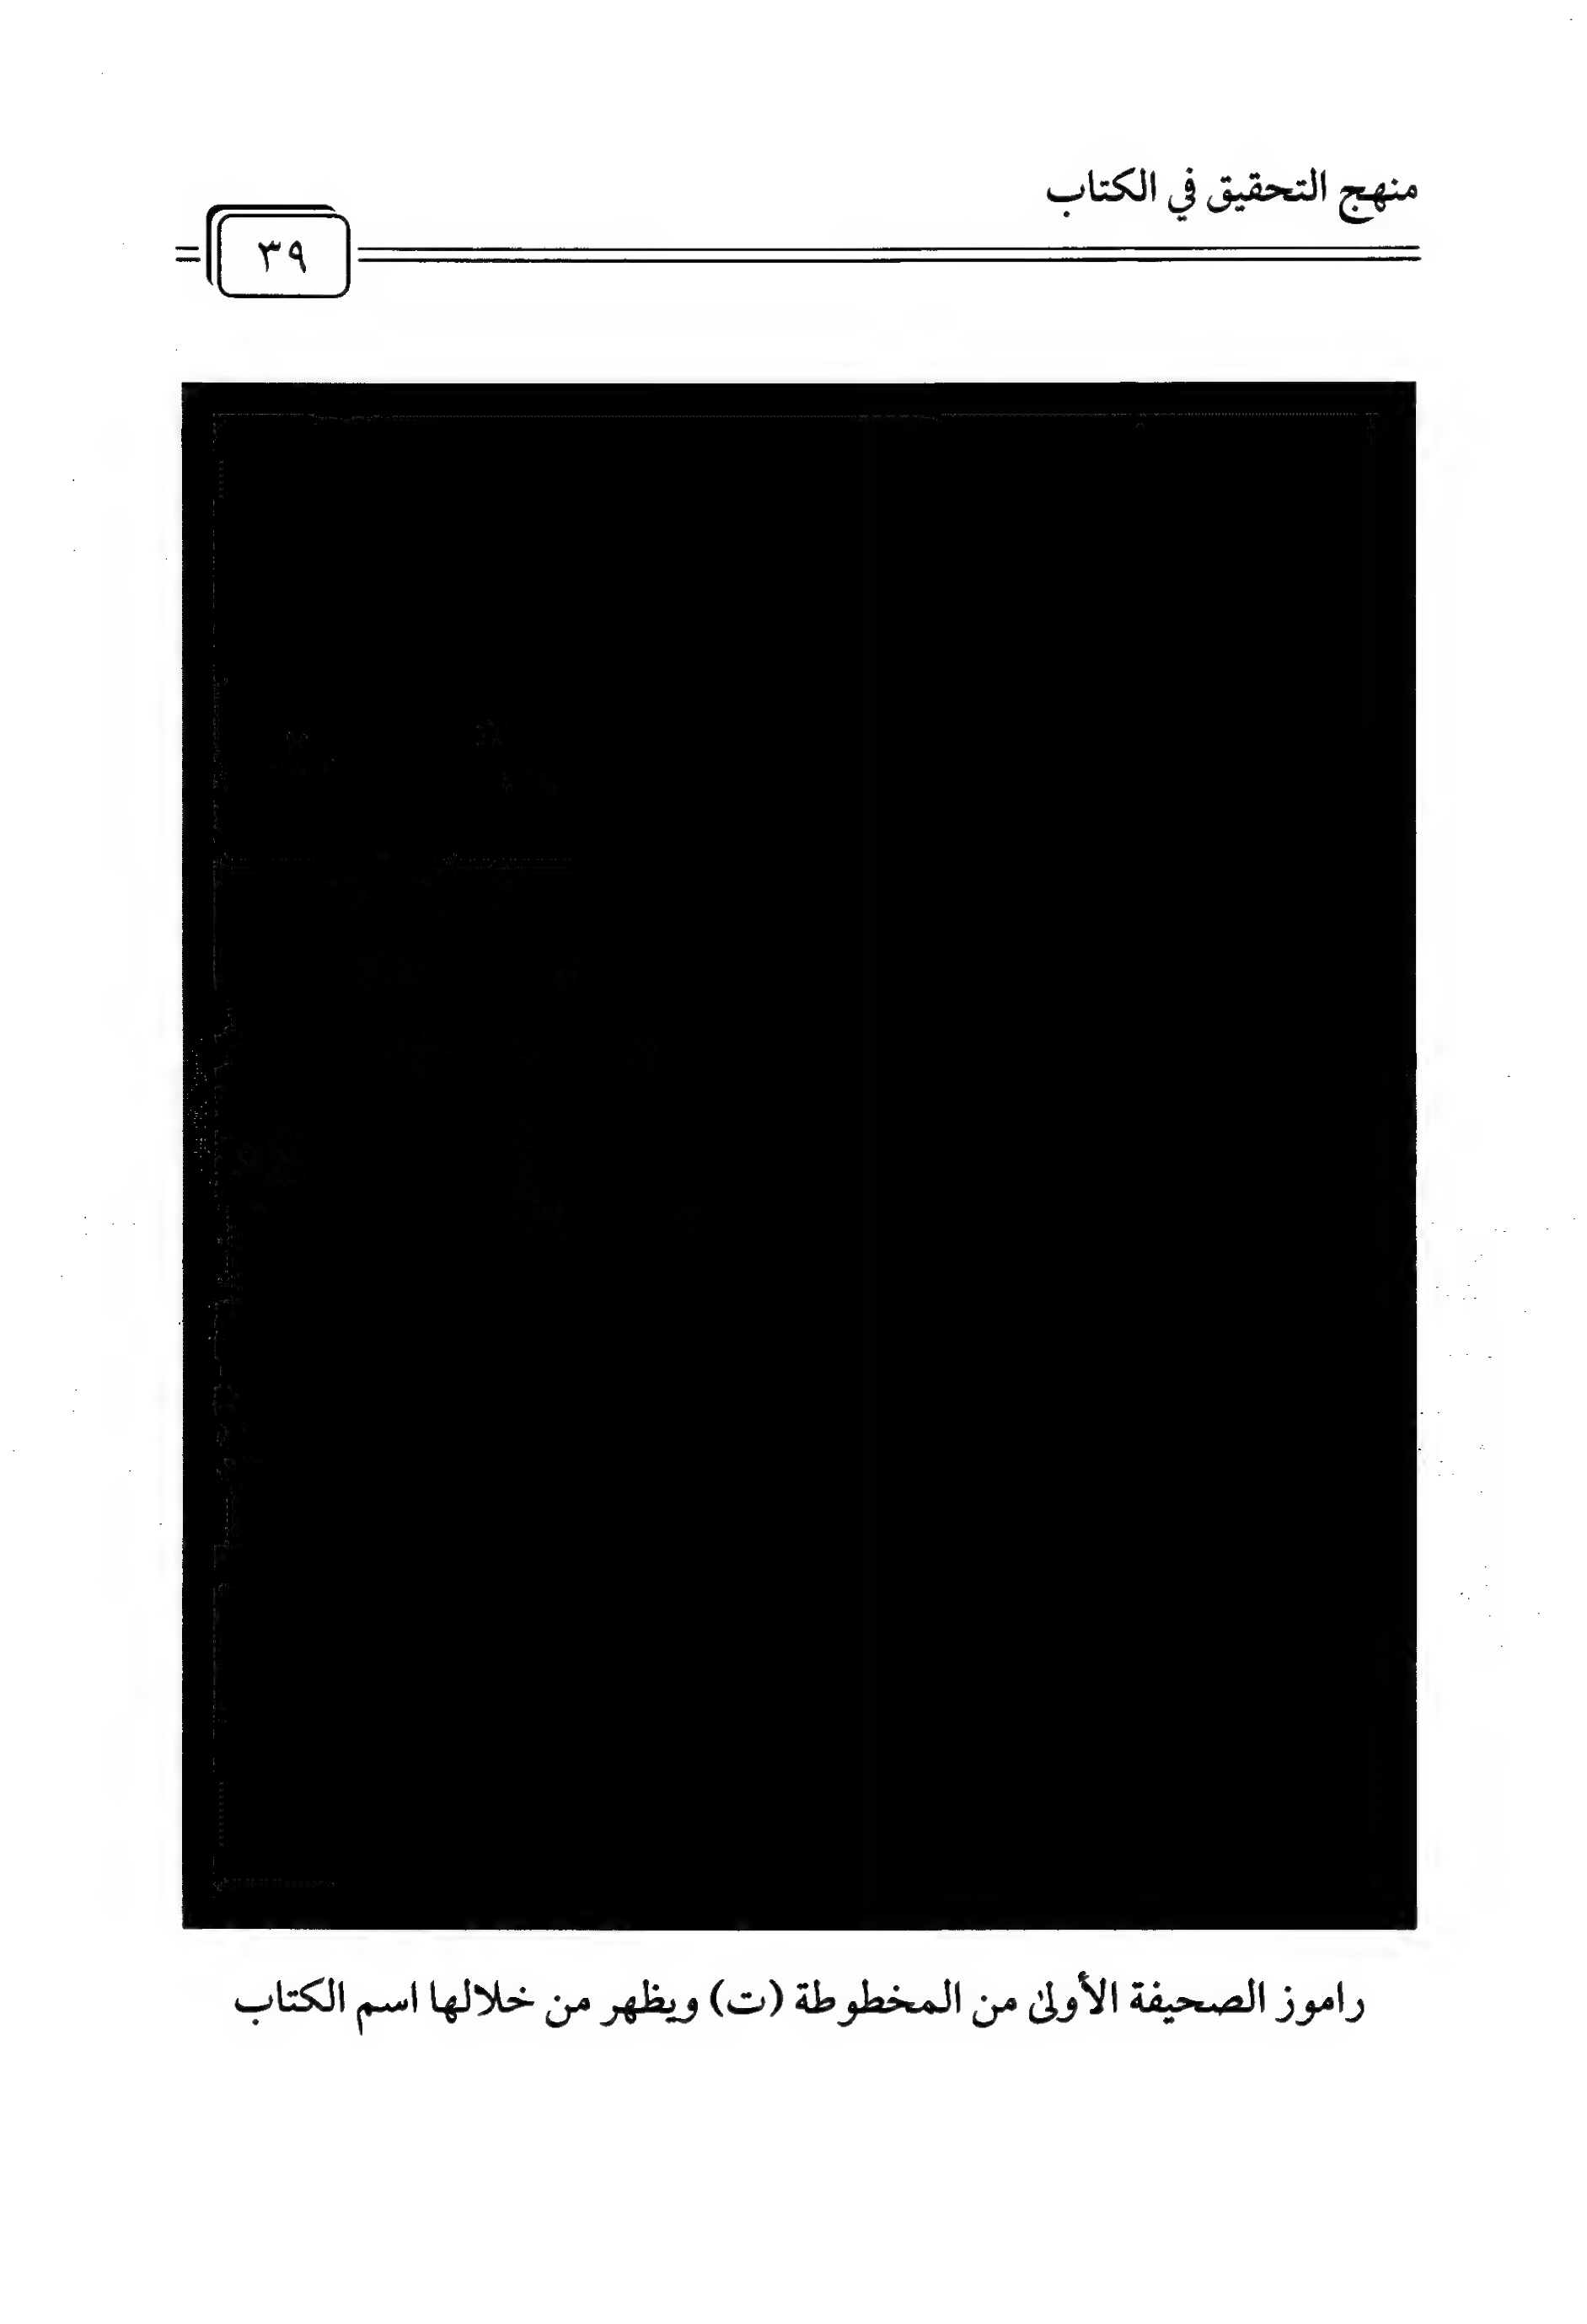 منهج التحقيق في الكتاب
٣٩
راموز الصحيفة الأولىٰ من المخطوطة (ت) ويظهر من خلالها اسم الكتاب